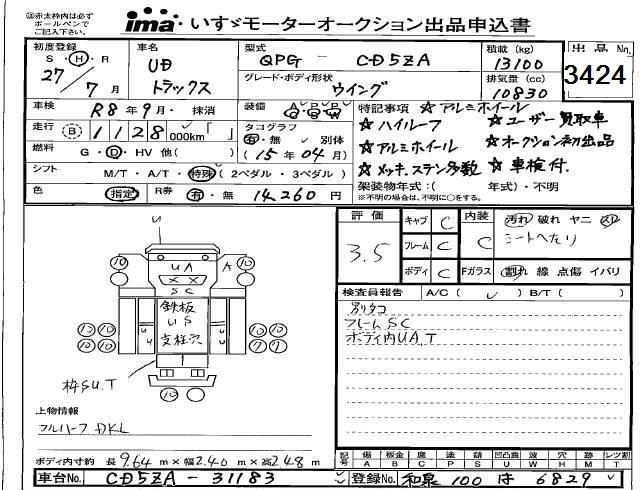 ㊟赤太枠内は必ず
ボールペンで
ご記入下さい。
ima いすゞモーターオークション出品申込書
初度登録 S・H・R 27年 7月
車名 UD トラックス
型式 QPG - CD5ZA
グレード・ボディ形状 ウイング
積載(kg) 13100
排気量(cc) 10830
出品No. 3424
車検 R8年9月・抹消
装備 A・P・P C・S・W
特記事項 ☆アルミホイール
☆ハイルーフ ☆ユーザー買取車
☆アルミホイール ☆オークション初出品
☆メッキ.ステン多数 ☆車検付.
走行 (B) 1128 000km「 」
タコグラフ 有・無 別体
(15年04月)
燃料 G・D・HV 他( )
シフト M/T・A/T・特殊(2ペダル・3ペダル)
架装物年式:( 年式)・不明
※不明の場合は、不明に○をする。
色 指定 R券 有・無 14,260円
評価 3.5
キャブ C
フレーム C
ボディ C
内装 C 汚れ 破れ ヤニ
シートへたり
Fガラス 割れ 線 点傷 イバリ
検査員報告 A/C( ✓ ) B/T( )
別タコ
フレームSC
ボディ内UA.T
10 UA A 10
XX
SC
鉄板
US
支柱穴
10 10 10 10
10 10 7 7
枠SU.T
10
上物情報
フルハーフ DKL
ボディ内寸約 長9.64m×幅2.40m×高2.48m
記号 傷A 板金B 腐C 塗P 錆S 凹凸曲U 波W 穴H 裂T レンズ割/
車台No. CD5ZA-31183
登録No. 和泉 100 は 6829